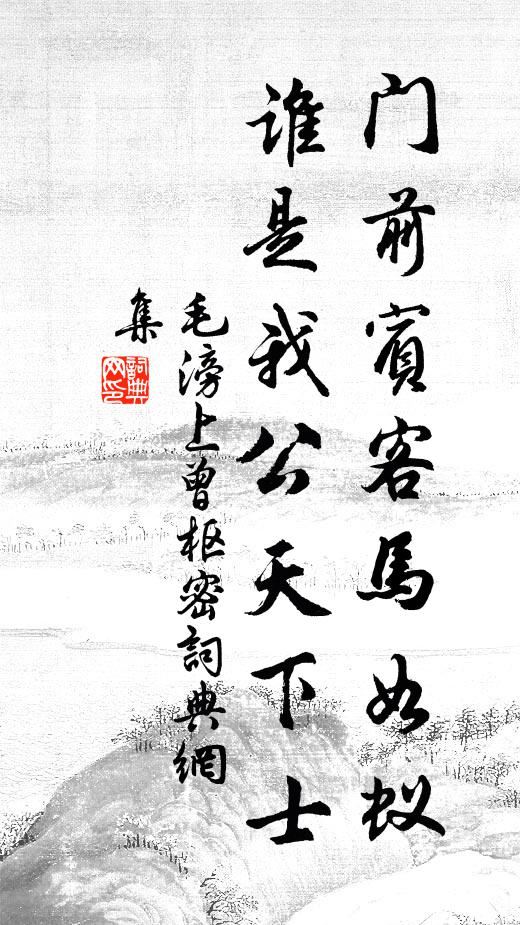 門前賓客馬如蚁
誰是我公天下士
毛滂上曾枢密詞典網
集
詞典
网印